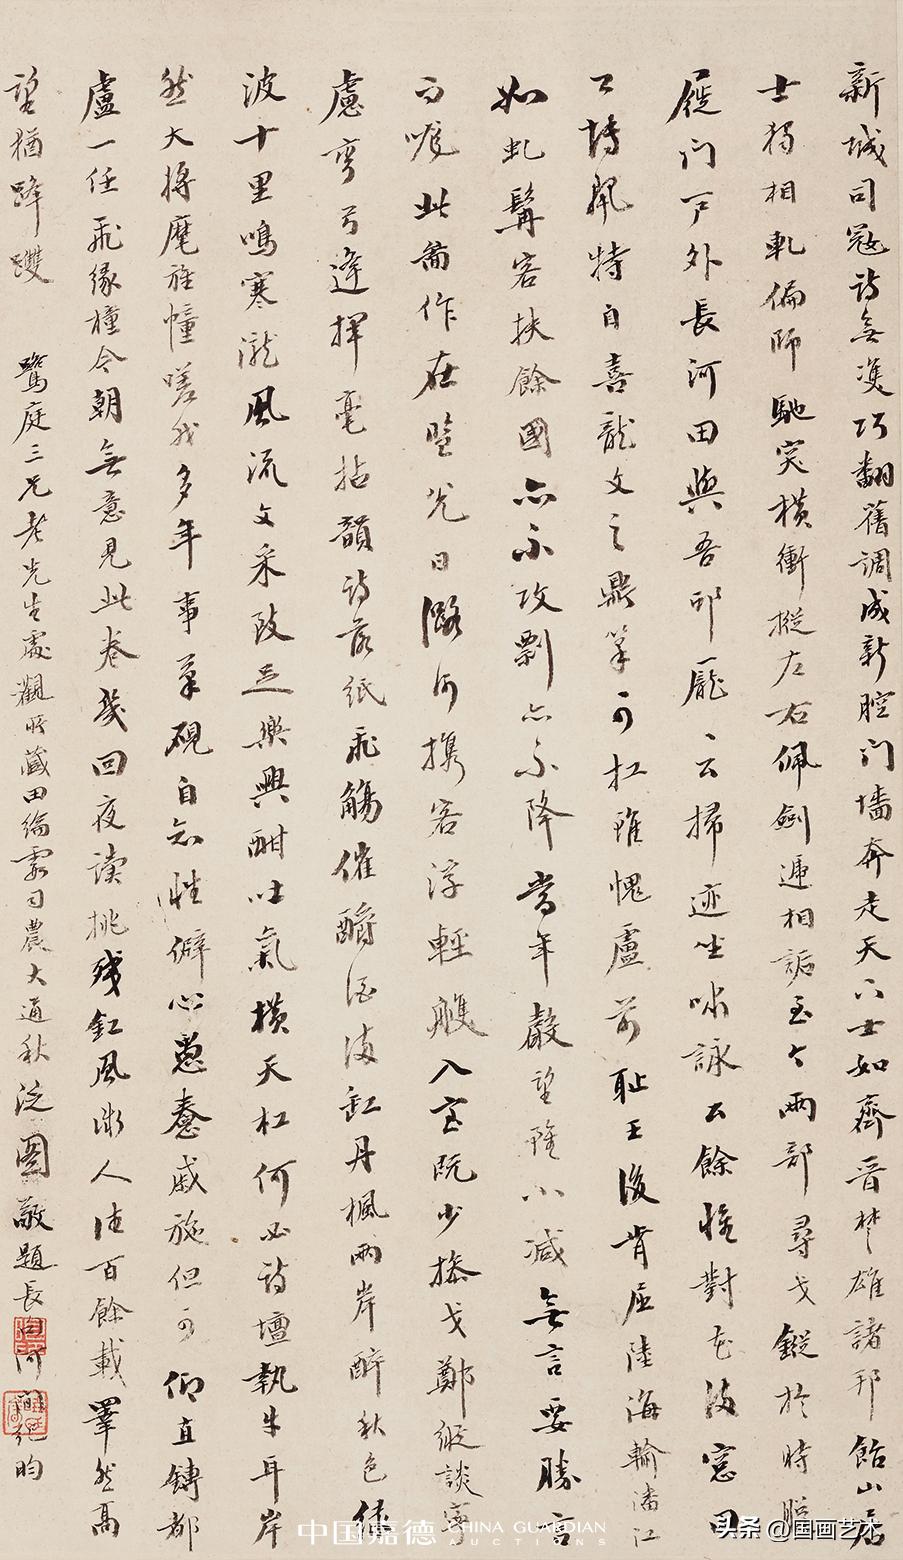 新城司寇詩無雙巧翻舊調成新腔門墻奔走天下士如齊晉楚雄諸邦飴山居
士獨相軋偏師馳突橫衝摐左右佩劍遞相詬至今兩部尋戈鏦於時脫
屣門戶外長河田與吾邱龐云掃迹坐嘯詠公餘惟對花滿窓田
公詩飛特自喜龍文之鼎筆可扛雖愧盧前恥王後肯屈陸海輸潘江
如虬髯客扶餘國亦不攻剽亦不降當年嚴望雖小減無言要勝言
而嚨此圖作在暄光日潞河攜客浮輕艭入室阮少操戈鄭縱談寧
慮彎弓逄揮毫拈韻詩落紙飛觴催釂酒滿缸丹楓兩岸醉秋色倢
波十里鳴寒瀧風流文采改足樂興酣吐氣橫天杠何必詩壇執牛耳岸
然大將麾旌幢嗟我多年事筆硯自知性僻心惷戇戚施但可仰直鎛都
盧一任飛緣橦今朝無意見此卷幾回夜讀挑殘釭風微人往百餘載睪然高
望猶跭䠫
鷺庭三兄老先生處觀所藏田綸霞司農大通秋泛圖敬題長白河間紀昀
中国嘉德 CHINA GUARDIAN AUCTIONS
头条 @国画艺术